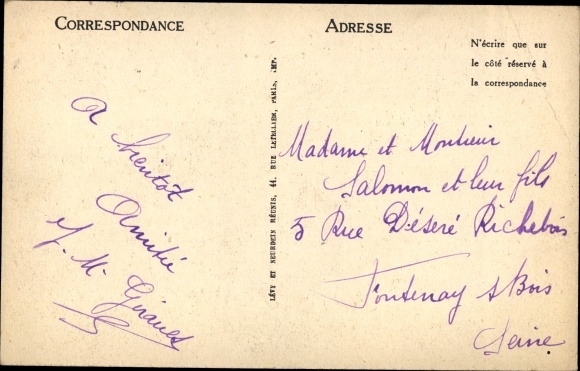 CORRESPONDANCE
A bientôt
Amitié
J. M.
LÉVY ET NEURDEIN RÉUNIS, 44, RUE LETELLIER, PARIS, IMP.
ADRESSE
N'écrire que sur
le côté réservé à
la correspondance
Madame et Monsieur
Salomon et leur fils
5 Rue Déseré Richebois
Fontenay s Bois
Seine